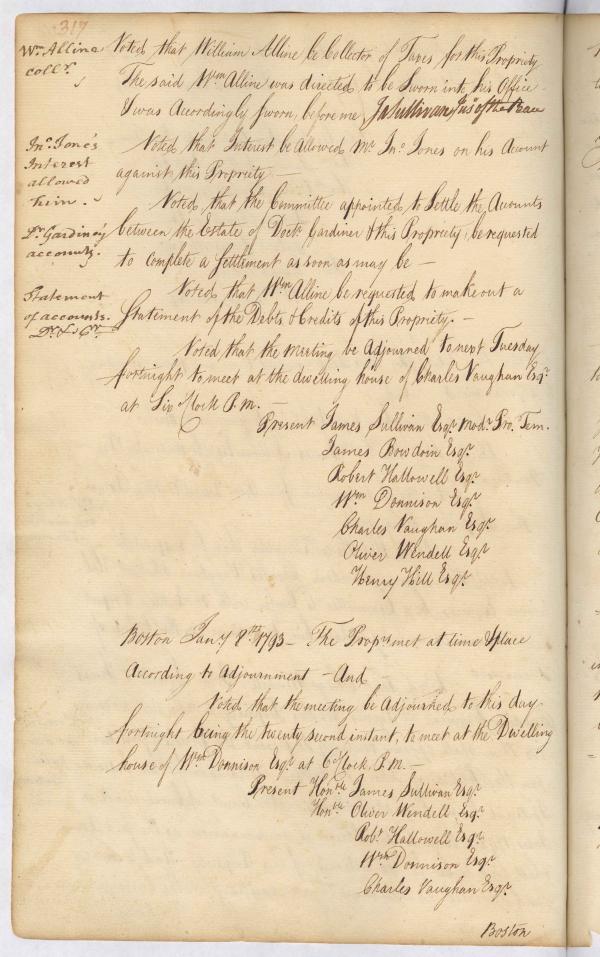 317
Wm Alline
collr.
Voted that William Alline be Collector of Taxes for this Propriety
The said Wm Alline was directed to be Sworn into his Office
& was Accordingly sworn, before me, Ja Sullivan Jus of the Peace
Jno. Jone's
Interest
allowed
him.
Voted that Interest be allowed Mr. Jno. Jones on his Account
against this Propriety —
Dr. Gardiner's
accounts.
Voted, that the Committee appointed to Settle the Accounts
between the Estate of Doctr. Gardiner & this Propriety, be requested
to Complete a Settlement as soon as may be —
Statement
of accounts.
Dr. & Cr.
Voted that Wm Alline be requested to make out a
Statement of the Debts & Credits of this Propriety. —
Voted that the meeting be Adjourned to next Tuesday
fortnight to meet at the dwelling house of Charles Vaughan Esqr.
at Six o'Clock P.M. —
Present James Sullivan Esqr. Modr. Pro. Tem.
James Bowdoin Esqr.
Robert Hallowell Esqr.
Wm Donnison Esqr.
Charles Vaughan Esqr.
Oliver Wendell Esqr.
Henry Hill Esqr.
Boston Jany 8th 1793 — The Proprs. met at time & place
According to Adjournment — And
Voted that the meeting be Adjourned to this day
fortnight being the twenty second instant, to meet at the Dwelling
house of Wm Donnison Esqr. at 6 o'Clock. P.M. —
Present Honble James Sullivan Esqr.
Honble Oliver Wendell Esqr.
Robt. Hallowell Esqr.
Wm Donnison Esqr.
Charles Vaughan Esqr.
Boston